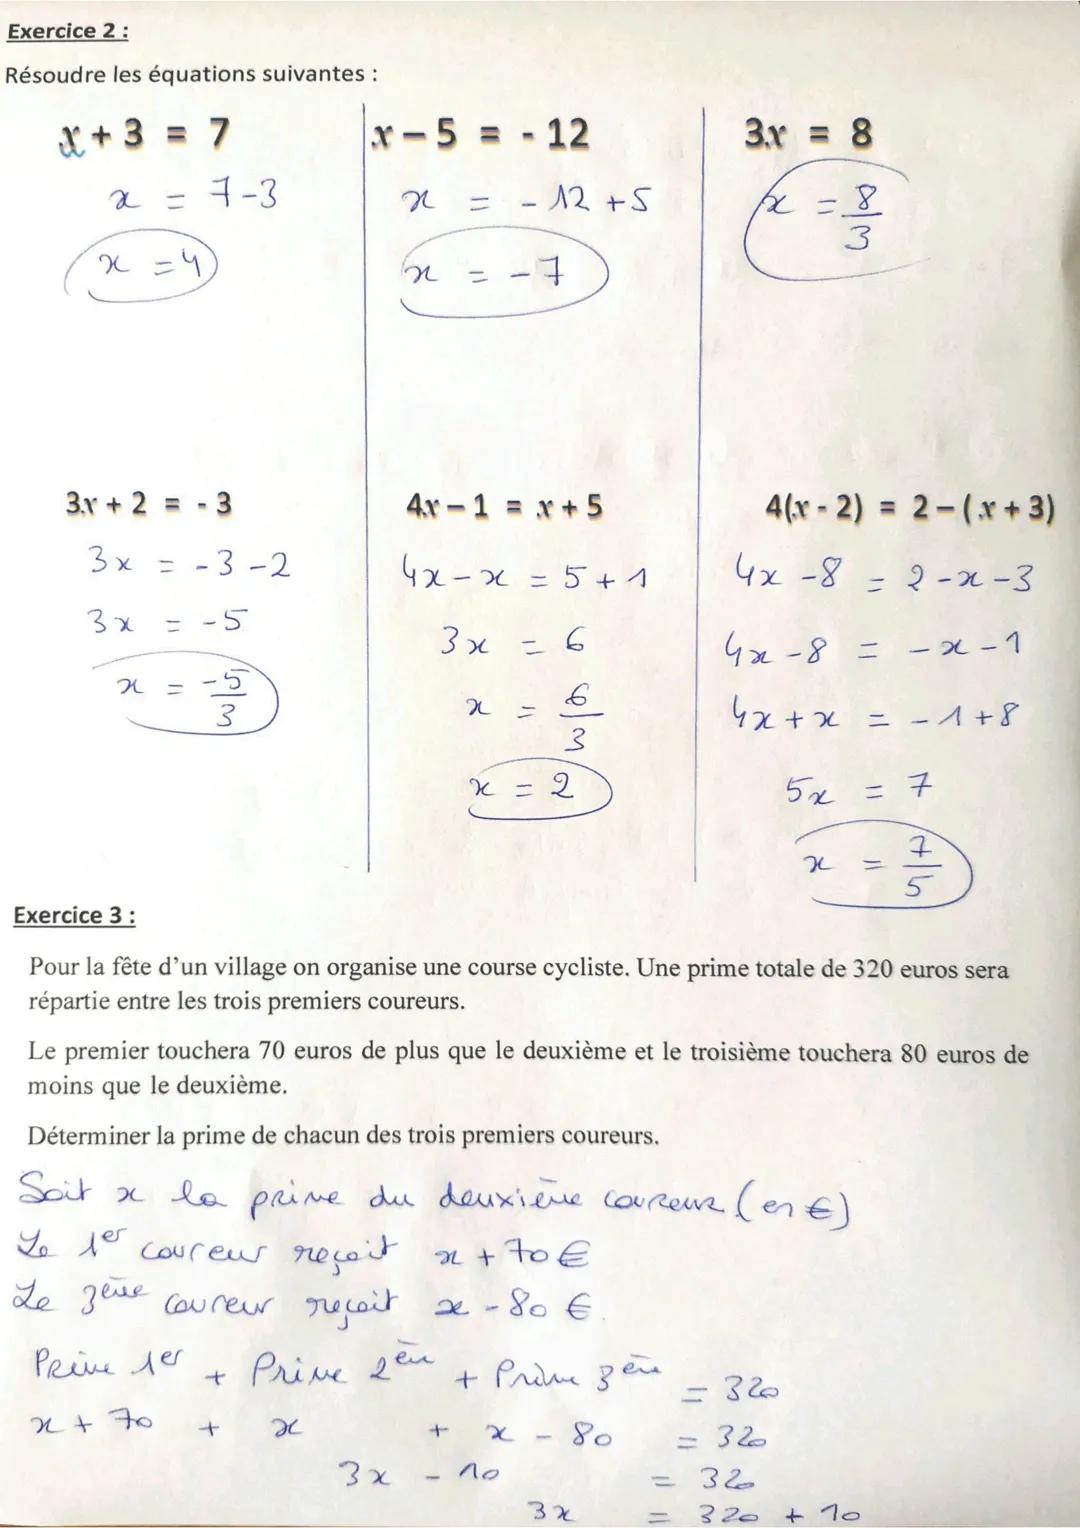 Exercice 2 :
Résoudre les équations suivantes :
x + 3 = 7
x = 7-3
x = 4
x – 5 = - 12
x = - 12 + 5
x = - 7
3x = 8
x = 8/3
3x + 2 = - 3
3x = - 3 - 2
3x = - 5
x = -5/3
4x – 1 = x + 5
4x - x = 5 + 1
3x = 6
x = 6/3
x = 2
4(x - 2) = 2 – ( x + 3)
4x - 8 = 2 - x - 3
4x - 8 = - x - 1
4x + x = - 1 + 8
5x = 7
x = 7/5
Exercice 3 :
Pour la fête d’un village on organise une course cycliste. Une prime totale de 320 euros sera
répartie entre les trois premiers coureurs.
Le premier touchera 70 euros de plus que le deuxième et le troisième touchera 80 euros de
moins que le deuxième.
Déterminer la prime de chacun des trois premiers coureurs.
Soit x la prime du deuxième coureur (en €)
Le 1er coureur reçoit x + 70 €
Le 3ème coureur reçoit x - 80 €.
Prime 1er + Prime 2èm + Prime 3èm = 320
x + 70 + x + x - 80 = 320
3x - 10 = 320
3x = 320 + 10